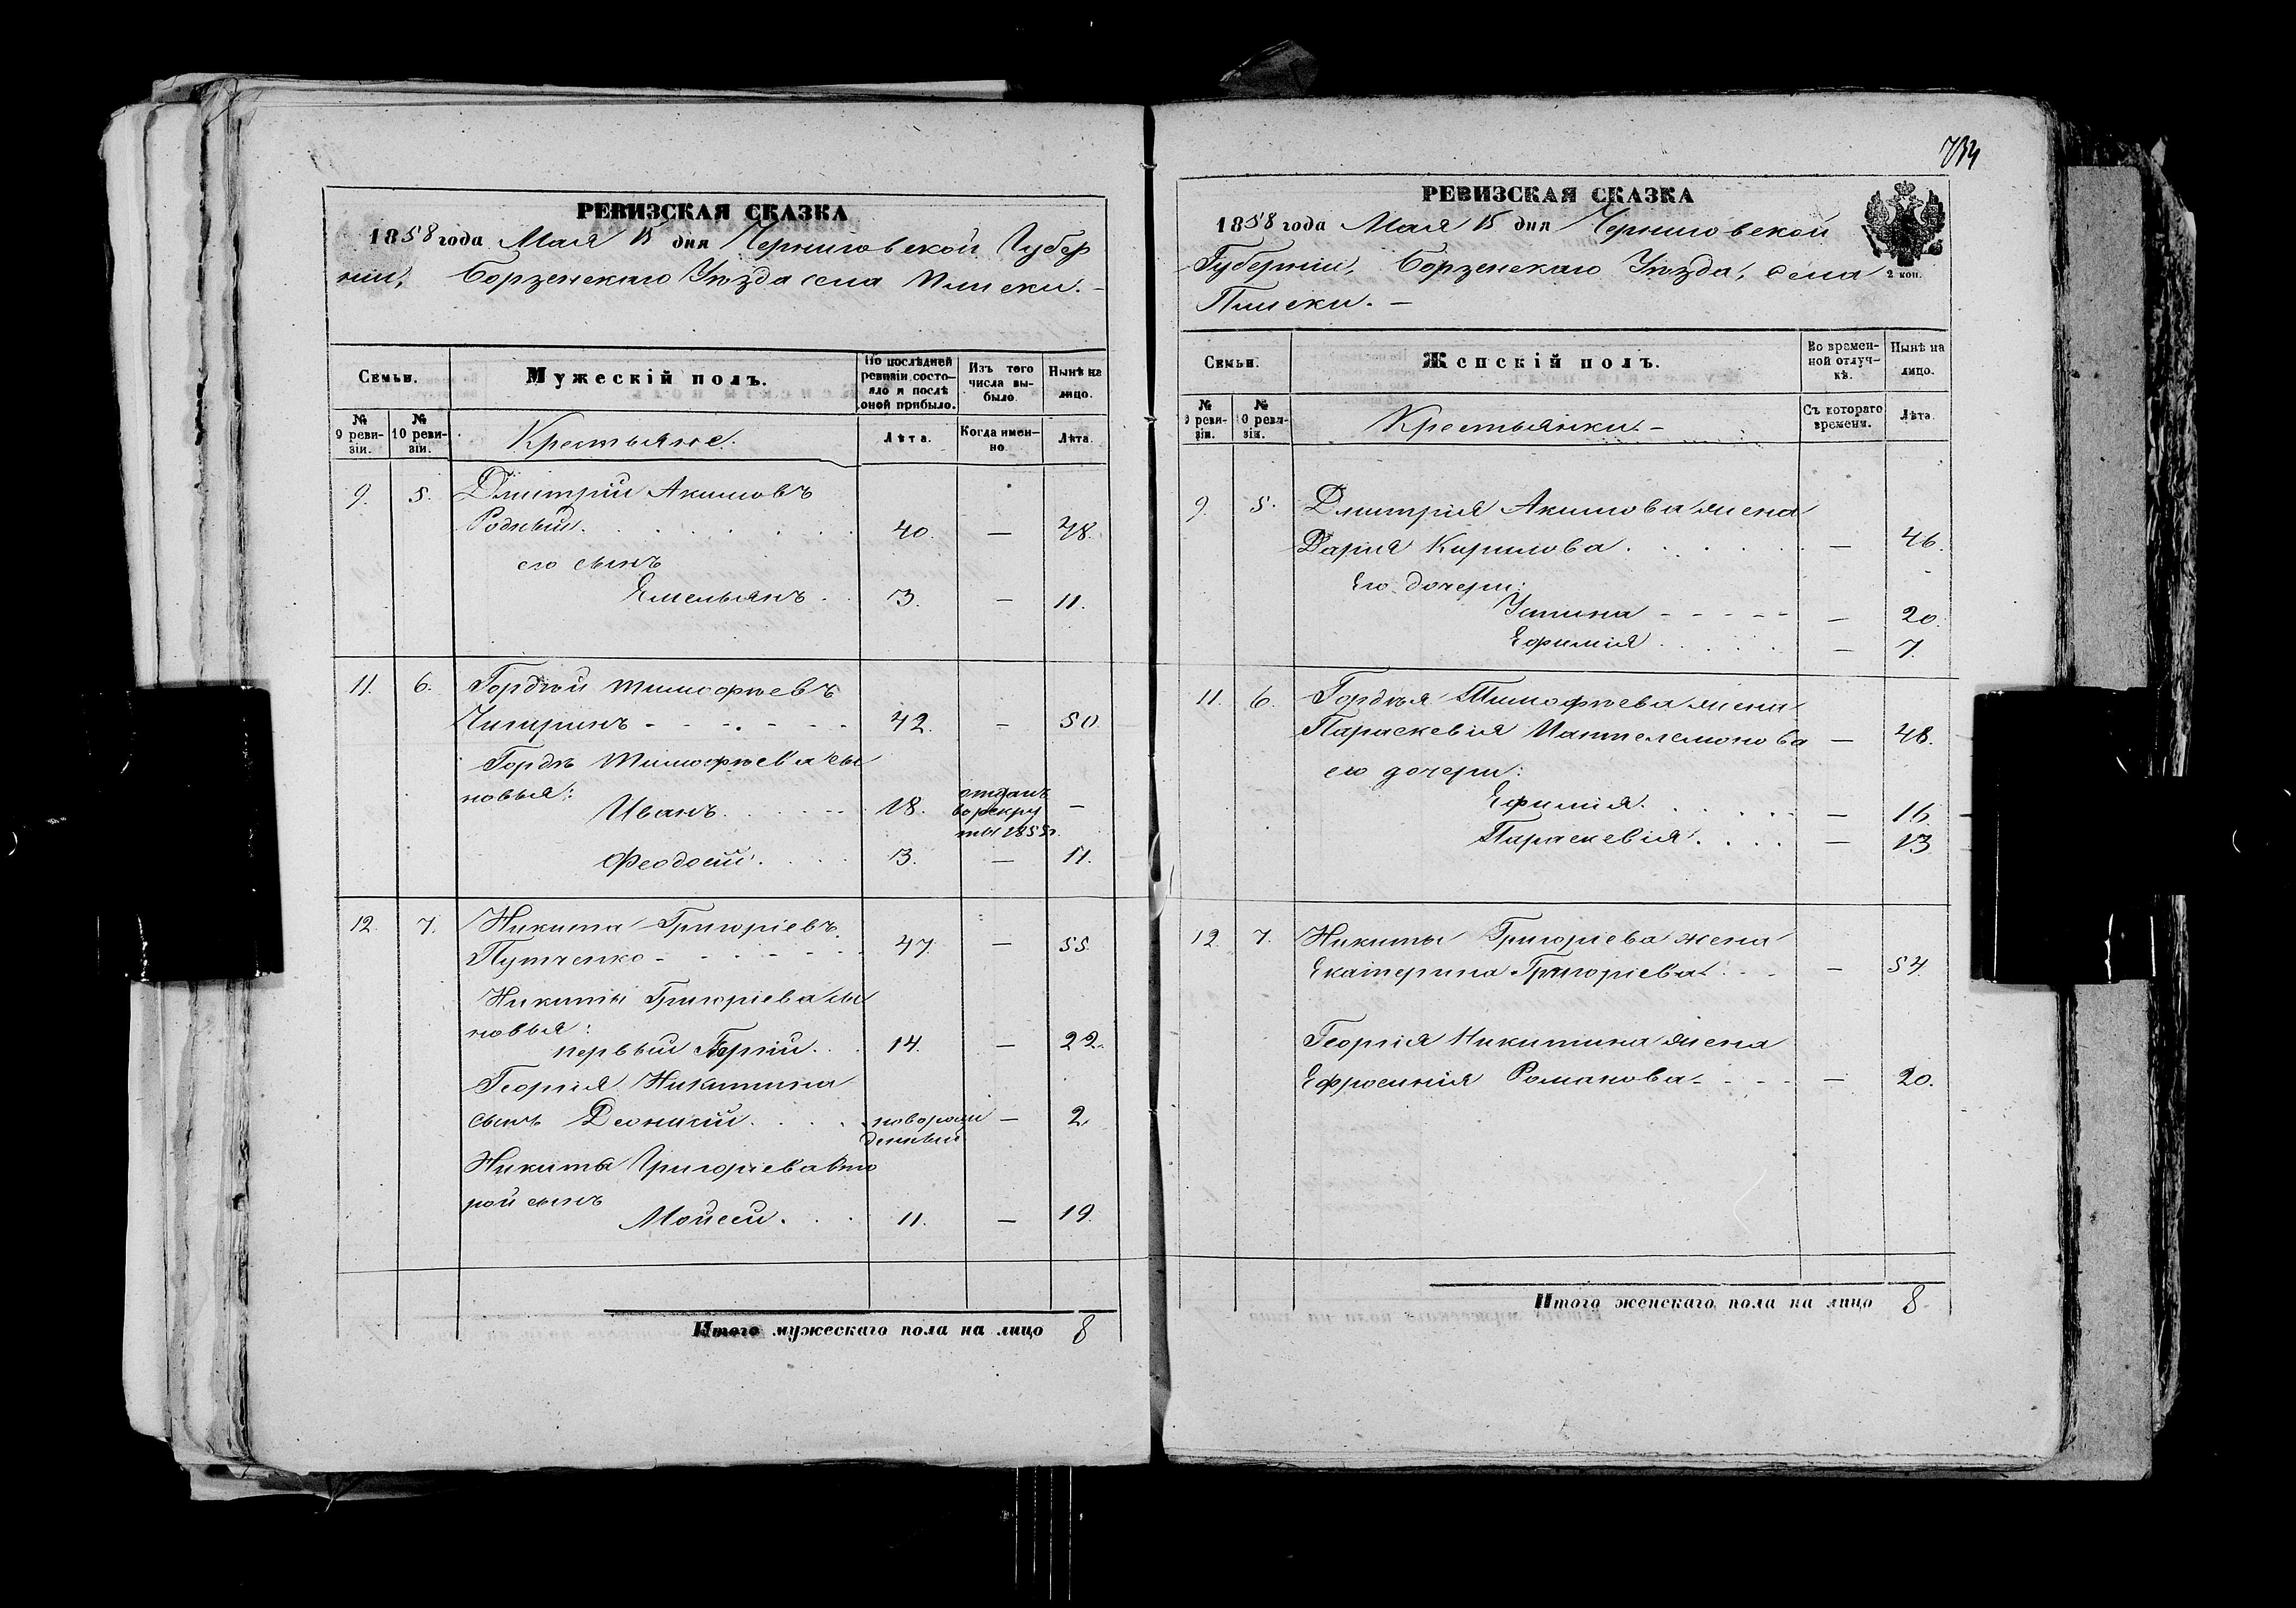 734
РЕВИЗСКАЯ СКАЗКА
1858 года Мая 15 дня Черниговской Губер
ніи, Борзенскаго Уѣзда села Плиски. –
Семьи.
Мужескій полъ.
По послѣдней ревизіи состояло и послѣ оной прибыло.
Изъ того числа выбыло.
Нынѣ на лицо.
№ 9 ревизіи.
№ 10 ревизіи.
Крестьяне.
Лѣта.
Когда именно.
Лѣта.
9. 5. Дмитрій Акимовъ
Родный. 40. — 48.
его сынъ
Емельянъ. 3. — 11.
11. 6. Гордѣй Тимофѣевъ
Чигринъ - 42. — 50.
Гордѣя Тимофѣева сы
новья:
Иванъ. 18. отданъ в рекруты 1855г. —
Феодосій. 3. — 11.
12. 7. Никита Григоріевъ
Путченко - 47. — 55.
Никиты Григоріева сы
новья:
первый Георгій. 14. — 22.
Георгія Никитина
сынъ Леонтій. новорожденный — 2
Никиты Григоріева вто
рой сынъ
Мойсей. 11. — 19.
Итого мужескаго пола на лицо 8
РЕВИЗСКАЯ СКАЗКА
1858 года Мая 15 дня Черниговской
Губерніи, Борзенскаго Уѣзда, села
Плиски. –
2 коп.
Семьи.
Женскій полъ.
Во временной отлучкѣ.
Нынѣ на лицо.
№ 9 ревизіи.
№ 10 ревизіи.
Крестьянки. –
Съ котораго времени.
Лѣта.
9. 5. Дмитрія Акимова жена
Дарія Кирилова. — 46.
Его дочери:
Устина — 20.
Ефимія. — 7.
11. 6. Гордѣя Тимофѣева жена
Параскевія Пантелемонова — 48.
его дочери:
Ефимія. — 16.
Параскевія. — 13
12. 7. Никиты Григоріева жена
Екатерина Григоріева. — 54.
Георгія Никитина жена
Ефросинія Романова. — 20.
Итого женскаго пола на лицо 8